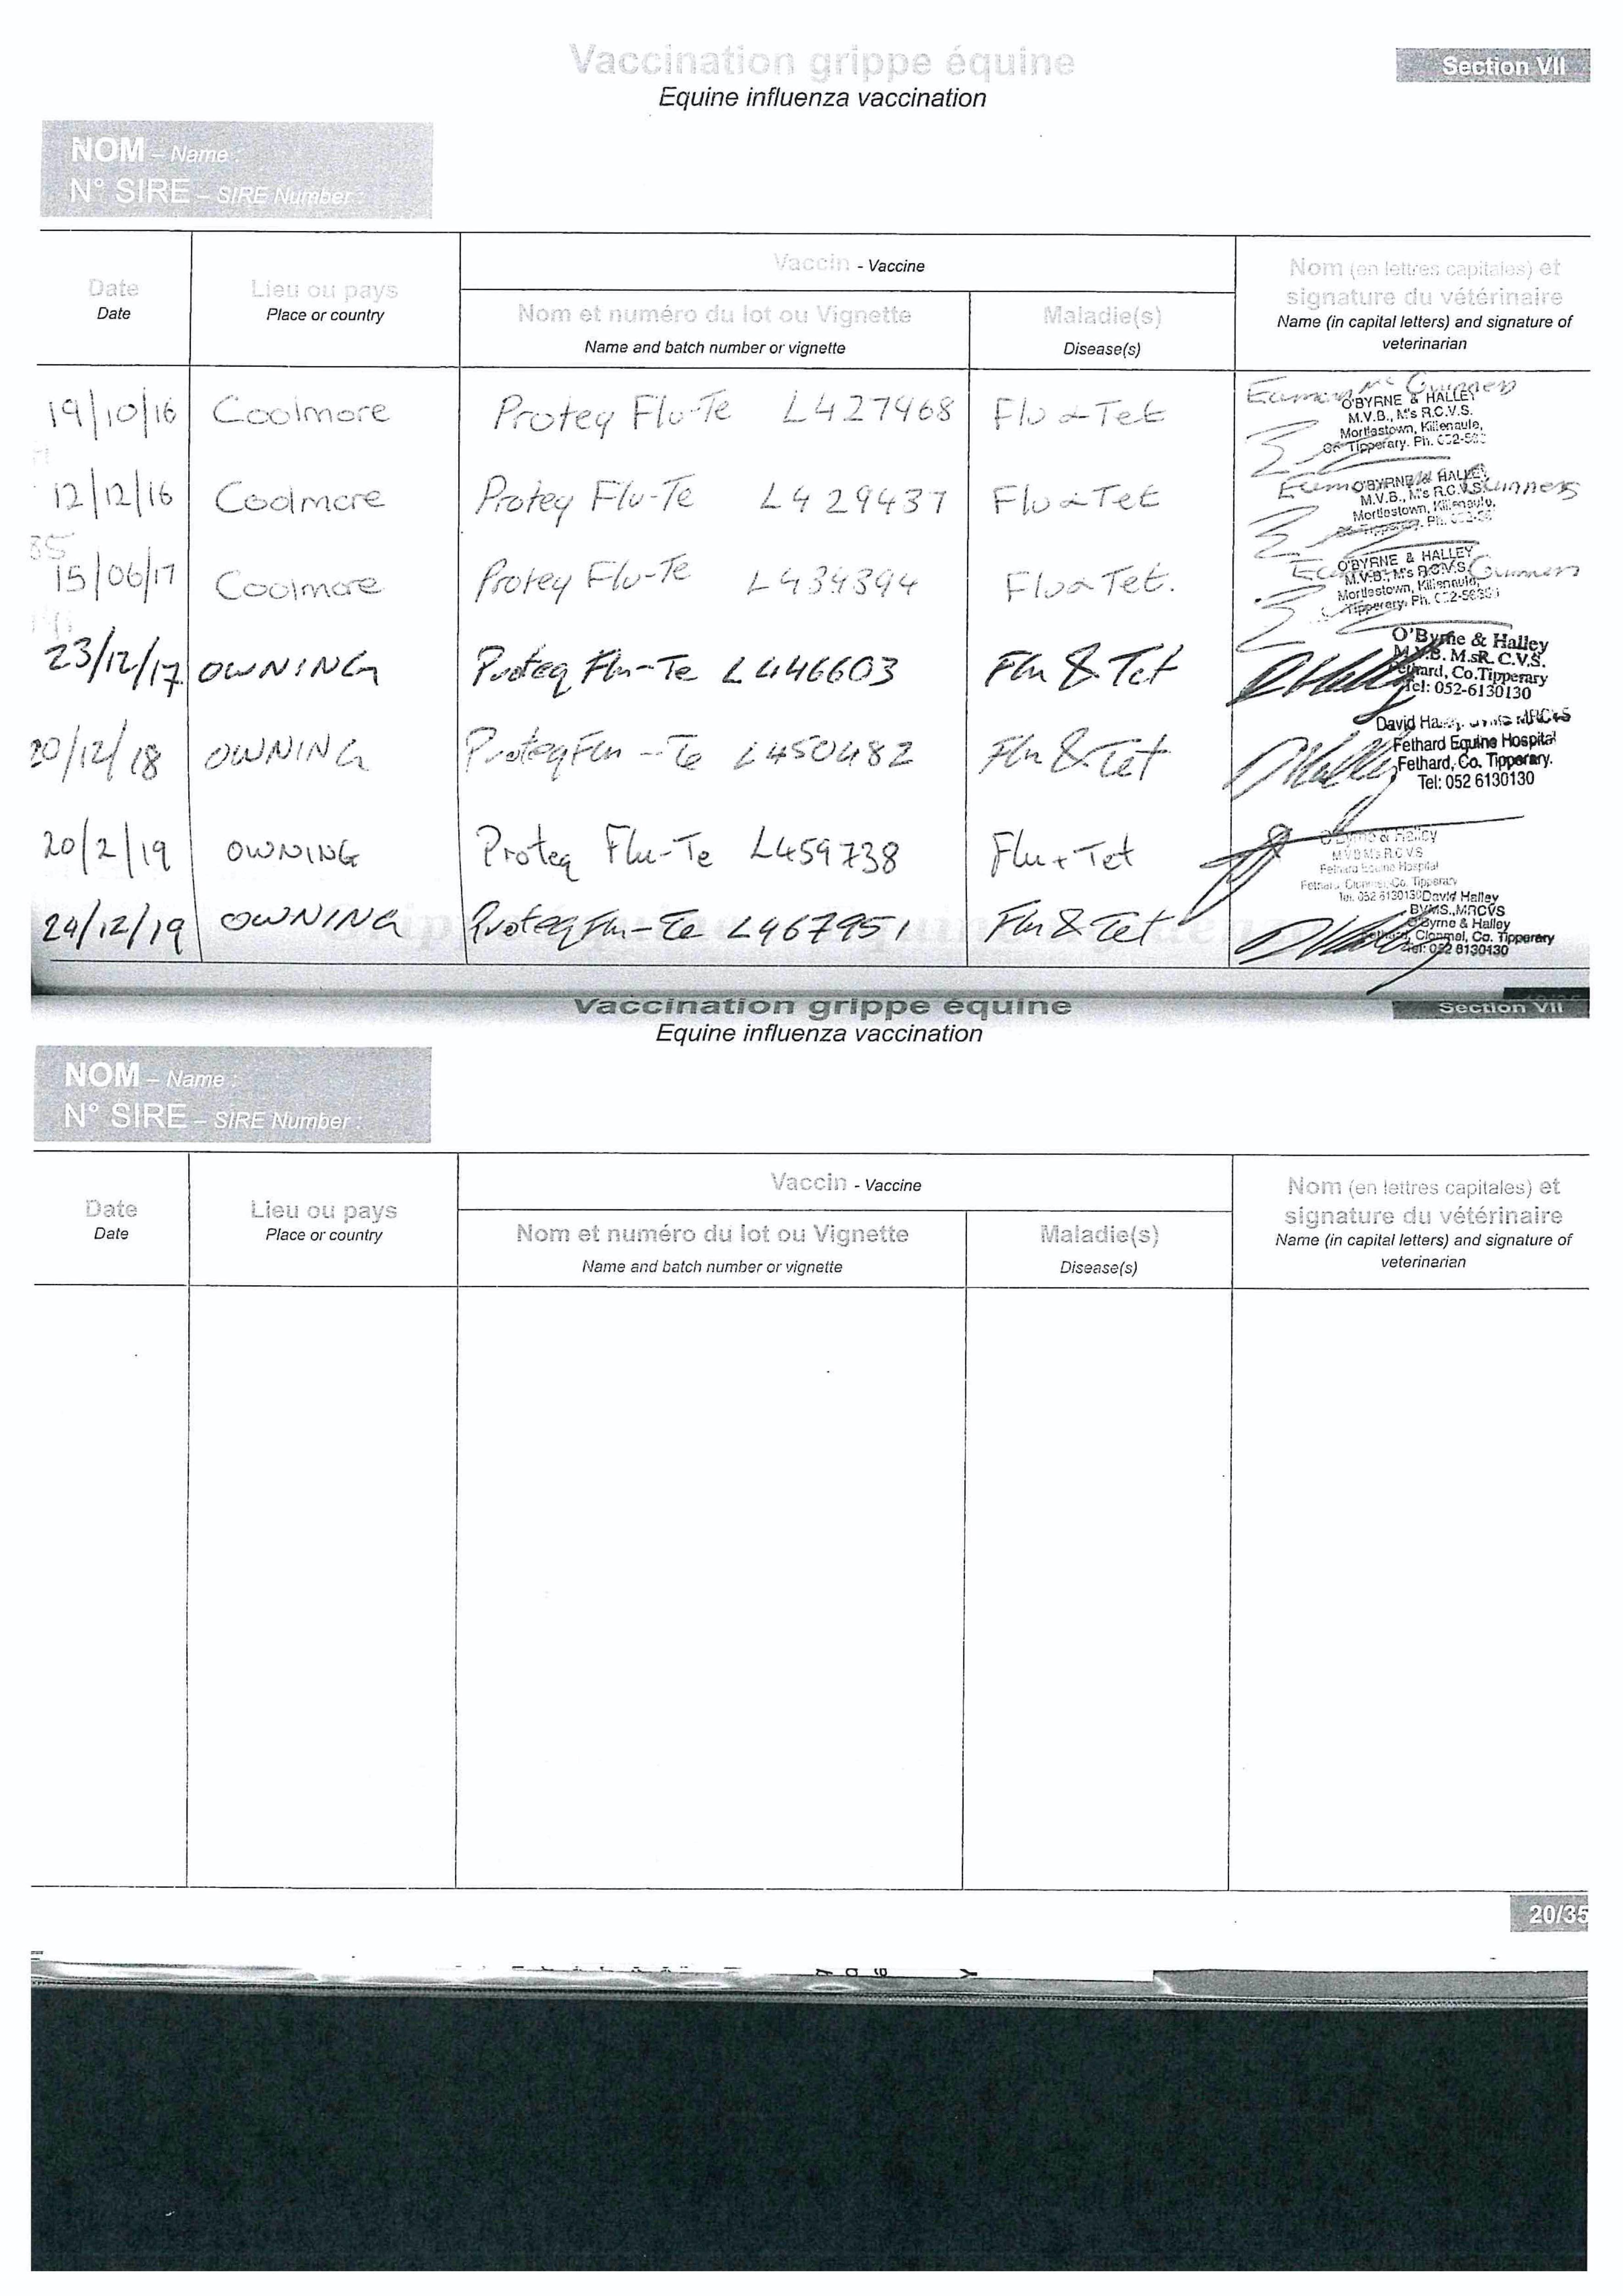 Vaccination grippe équine
Section VII
Equine influenza vaccination
NOM – Name :
N° SIRE – SIRE Number :
Date
Date
Lieu ou pays
Place or country
Vaccin - Vaccine
Nom et numéro du lot ou Vignette
Name and batch number or vignette
Maladie(s)
Disease(s)
Nom (en lettres capitales) et
signature du vétérinaire
Name (in capital letters) and signature of
veterinarian
19/10/16 Coolmore Proteq Flu-Te L427468 Flu & Tet
O'BYRNE & HALLEY
M.V.B., M's R.C.V.S.
Mortlestown, Killenaule,
Tipperary. Ph.
12/12/16 Coolmore Proteq Flu-Te L429437 Flu & Tet
O'BYRNE & HALLEY
M.V.B., M's R.C.V.S.
Mortlestown, Killenaule,
15/06/17 Coolmore Proteq Flu-Te L434394 Flu & Tet.
O'BYRNE & HALLEY
M.V.B., M's R.C.V.S.
Mortlestown, Killenaule,
Tipperary. Ph.
23/12/17 OWNING Proteq Flu-Te L446603 Flu & Tet
O'Byrne & Halley
M.V.B. M.sR.C.V.S.
Fethard, Co.Tipperary
Tel: 052-6130130
20/12/18 OWNING Proteq Flu-Te L450482 Flu & Tet
David Halley
Fethard Equine Hospital
Fethard, Co. Tipperary.
Tel: 052 6130130
20/2/19 OWNING Proteq Flu-Te L459738 Flu + Tet
O'Byrne & Halley
M.V.B M's R.C.V.S
Fethard Equine Hospital
Fethard, Clonmel, Co. Tipperary
Tel: 052 6130130
24/12/19 OWNING Proteq Flu-Te L467951 Flu & Tet
David Halley
BVMS.,MRCVS
O'Byrne & Halley
Fethard, Clonmel, Co. Tipperary
Tel: 052 6130130
Vaccination grippe équine
Section VII
Equine influenza vaccination
NOM – Name :
N° SIRE – SIRE Number :
Date
Date
Lieu ou pays
Place or country
Vaccin - Vaccine
Nom et numéro du lot ou Vignette
Name and batch number or vignette
Maladie(s)
Disease(s)
Nom (en lettres capitales) et
signature du vétérinaire
Name (in capital letters) and signature of
veterinarian
20/35